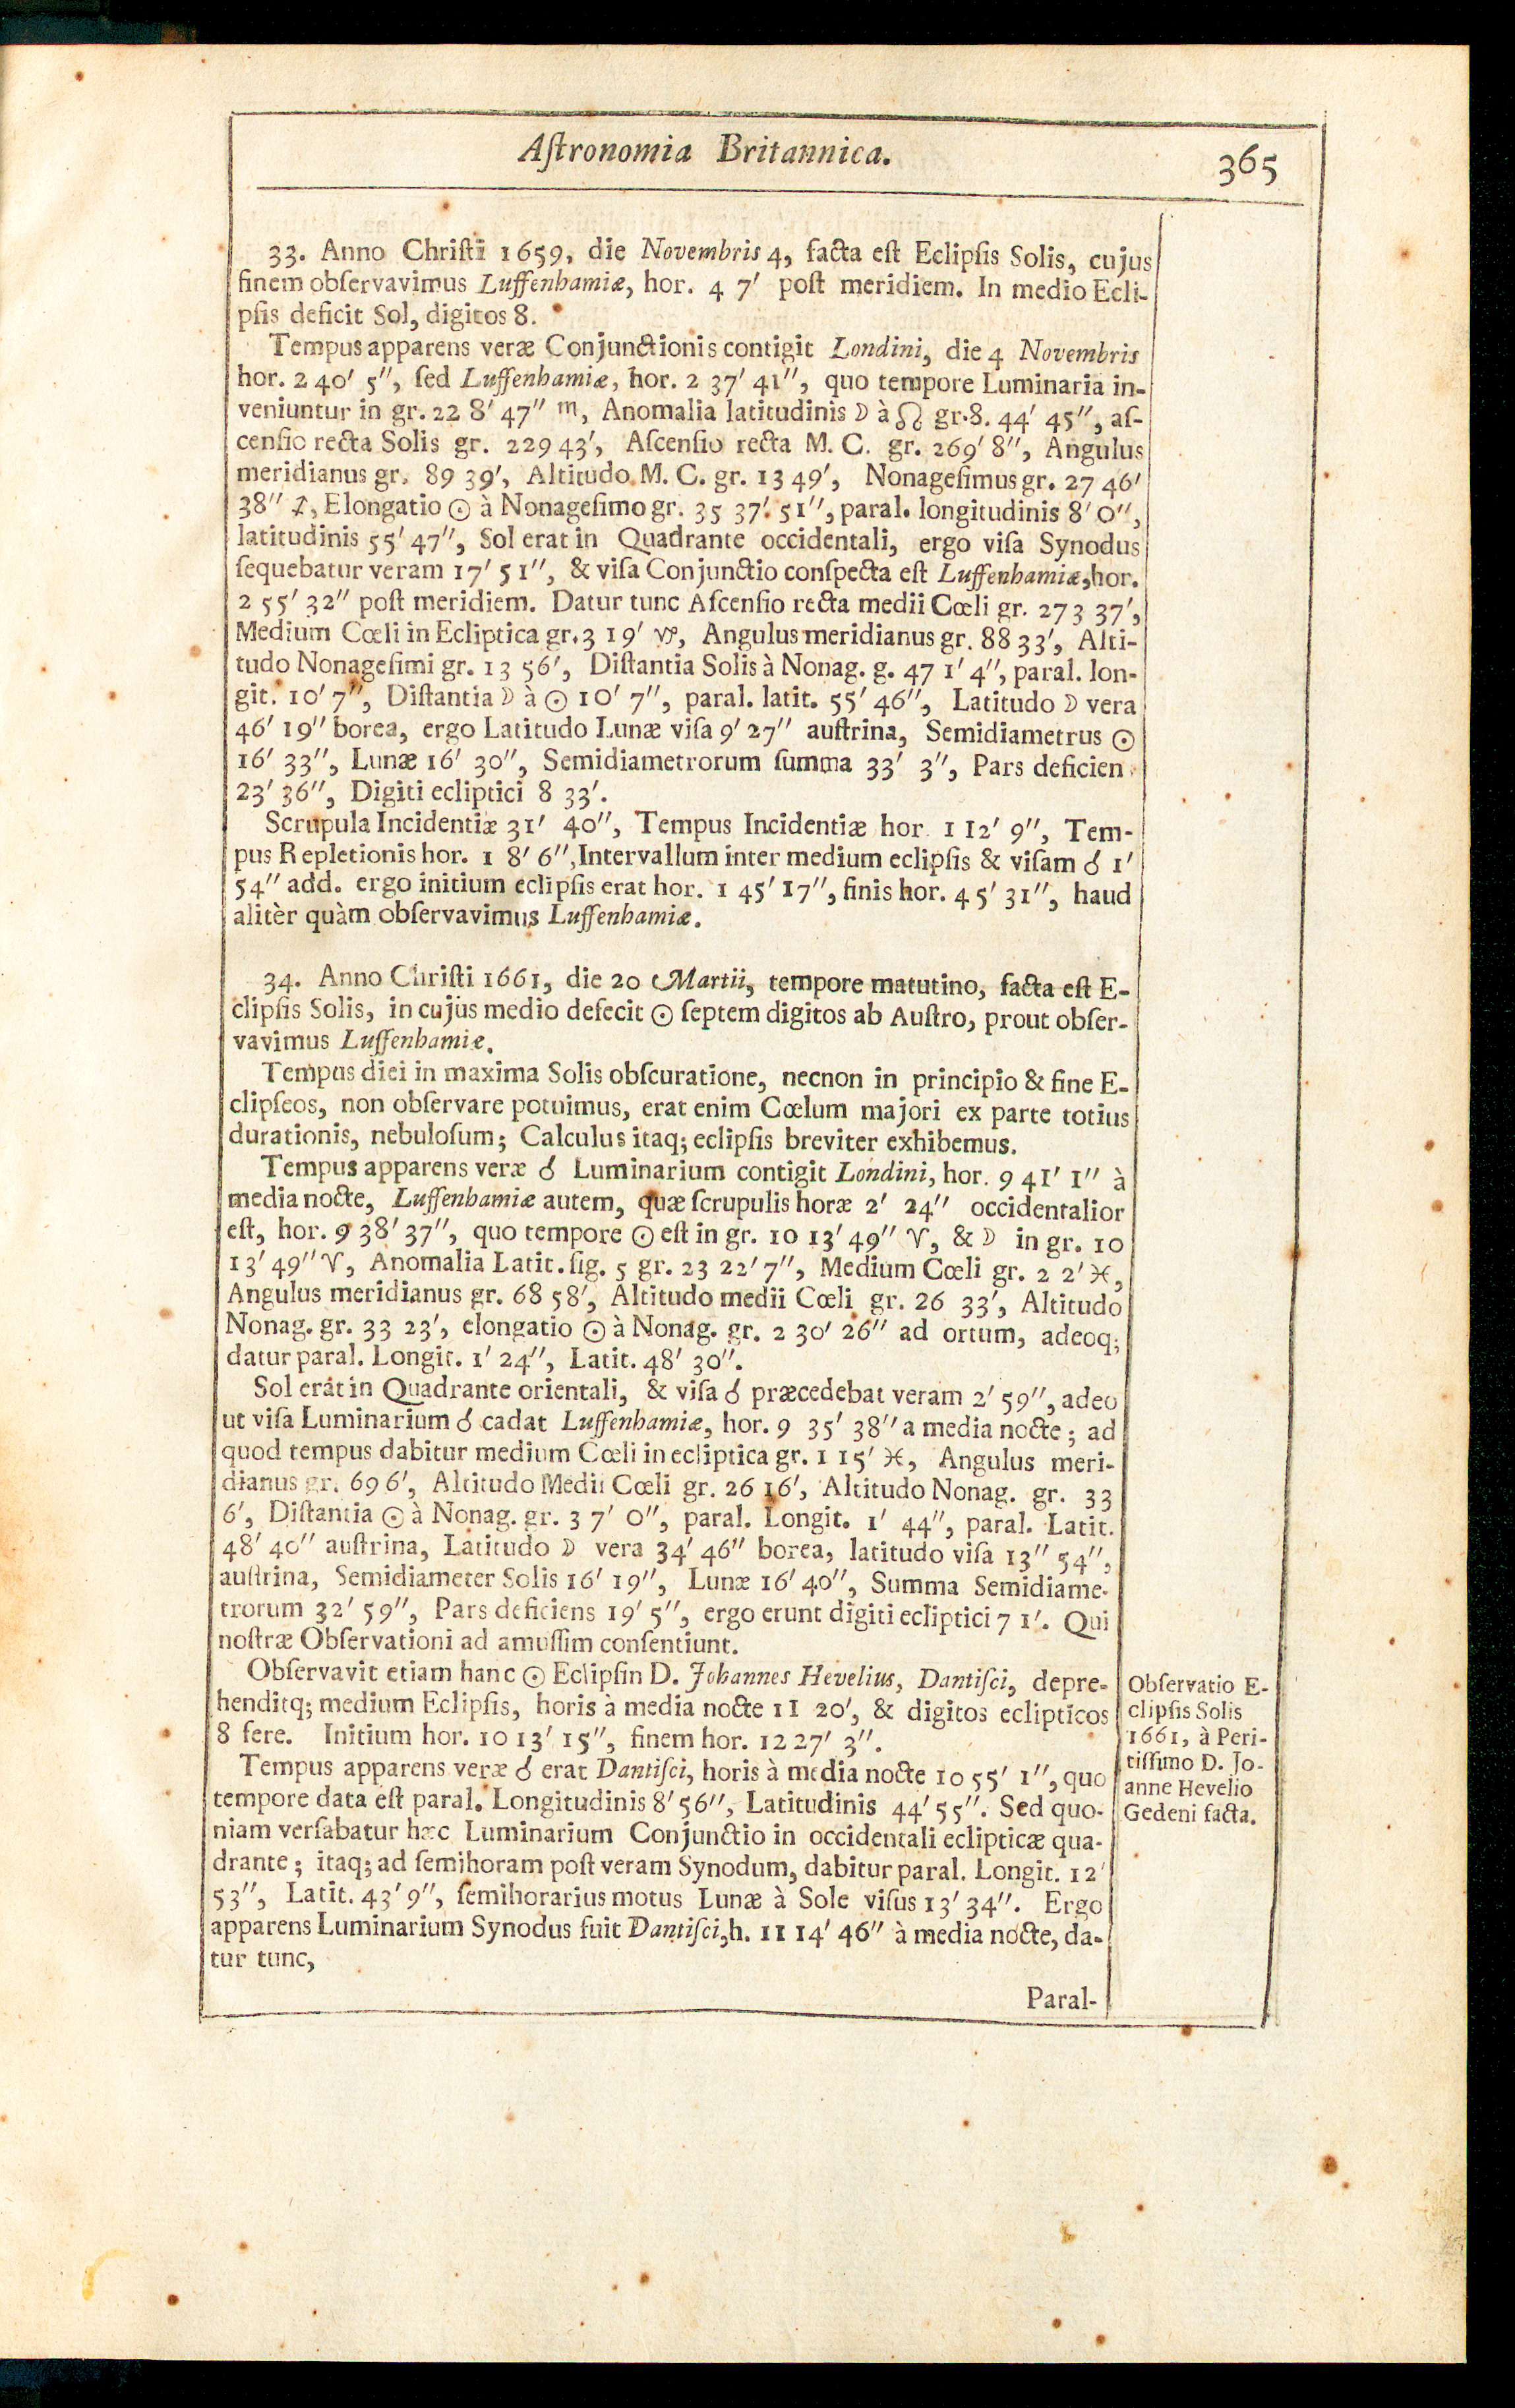 Aſtronomia Britannica.
365
33. Anno Chriſti 1659, die Novembris 4, facta eſt Eclipſis Solis, cujus
finem obſervavimus Luffenhamiæ, hor. 4 7′ poſt meridiem. In medio Ecli-
pſis deficit Sol, digitos 8.
Tempus apparens veræ Conjunctionis contigit Londini, die 4 Novembris
hor. 2 40′ 5″, ſed Luffenhamiæ, hor. 2 37′ 41″, quo tempore Luminaria in-
veniuntur in gr. 22 8′ 47″ ♏, Anomalia latitudinis ☽ à ☊ gr. 8. 44′ 45″, aſ-
cenſio recta Solis gr. 229 43′, Aſcenſio recta M. C. gr. 269′ 8″, Angulus
meridianus gr. 89 39′, Altitudo M. C. gr. 13 49′, Nonageſimus gr. 27 46′
38″ ♐, Elongatio ☉ à Nonageſimo gr. 35 37′ 51″, paral. longitudinis 8′ 0″,
latitudinis 55′ 47″, Sol erat in Quadrante occidentali, ergo viſa Synodus
ſequebatur veram 17′ 51″, & viſa Conjunctio conſpecta eſt Luffenhamiæ, hor.
2 55′ 32″ poſt meridiem. Datur tunc Aſcenſio recta medii Cœli gr. 273 37′,
Medium Cœli in Ecliptica gr. 3 19′ ♑, Angulus meridianus gr. 88 33′, Alti-
tudo Nonageſimi gr. 13 56′, Diſtantia Solis à Nonag. g. 47 1′ 4″, paral. lon-
git. 10′ 7″, Diſtantia ☽ à ☉ 10′ 7″, paral. latit. 55′ 46″, Latitudo ☽ vera
46′ 19″ borea, ergo Latitudo Lunæ viſa 9′ 27″ auſtrina, Semidiametrus ☉
16′ 33″, Lunæ 16′ 30″, Semidiametrorum ſumma 33′ 3″, Pars deficien
23′ 36″, Digiti ecliptici 8 33′.
Scrupula Incidentiæ 31′ 40″, Tempus Incidentiæ hor. 1 12′ 9″, Tem-
pus Repletionis hor. 1 8′ 6″, Intervallum inter medium eclipſis & viſam ☌ 1′
54″ add. ergo initium eclipſis erat hor. 1 45′ 17″, finis hor. 4 5′ 31″, haud
alitèr quàm obſervavimus Luffenhamiæ.
34. Anno Chriſti 1661, die 20 Martii, tempore matutino, facta eſt E-
clipſis Solis, in cujus medio defecit ☉ ſeptem digitos ab Auſtro, prout obſer-
vavimus Luffenhamiæ.
Tempus diei in maxima Solis obſcuratione, necnon in principio & fine E-
clipſeos, non obſervare potuimus, erat enim Cœlum majori ex parte totius
durationis, nebuloſum; Calculus itaq; eclipſis breviter exhibemus.
Tempus apparens veræ ☌ Luminarium contigit Londini, hor. 9 41′ 1″ à
media nocte, Luffenhamiæ autem, quæ ſcrupulis horæ 2′ 24″ occidentalior
eſt, hor. 9 38′ 37″, quo tempore ☉ eſt in gr. 10 13′ 49″ ♈, & ☽ in gr. 10
13′ 49″ ♈, Anomalia Latit. ſig. 5 gr. 23 22′ 7″, Medium Cœli gr. 2 2′ ♓,
Angulus meridianus gr. 68 58′, Altitudo medii Cœli gr. 26 33′, Altitudo
Nonag. gr. 33 23′, elongatio ☉ à Nonag. gr. 2 30′ 26″ ad ortum, adeoq;
datur paral. Longit. 1′ 24″, Latit. 48′ 30″.
Sol erat in Quadrante orientali, & viſa ☌ præcedebat veram 2′ 59″, adeo
ut viſa Luminarium ☌ cadat Luffenhamiæ, hor. 9 35′ 38″ a media nocte; ad
quod tempus dabitur medium Cœli in ecliptica gr. 1 15′ ♓, Angulus meri-
dianus gr. 69 6′, Altitudo Medii Cœli gr. 26 16′, Altitudo Nonag. gr. 33
6′, Diſtantia ☉ à Nonag. gr. 3 7′ 0″, paral. Longit. 1′ 44″, paral. Latit.
48′ 40″ auſtrina, Latitudo ☽ vera 34′ 46″ borea, latitudo viſa 13″ 54″,
auſtrina, Semidiameter Solis 16′ 19″, Lunæ 16′ 40″, Summa Semidiame-
trorum 32′ 59″, Pars deficiens 19′ 5″, ergo erunt digiti ecliptici 7 1′. Qui
noſtræ Obſervationi ad amuſſim conſentiunt.
Obſervavit etiam hanc ☉ Eclipſin D. Johannes Hevelius, Dantiſci, depre-
henditq; medium Eclipſis, horis à media nocte 11 20′, & digitos eclipticos
8 fere. Initium hor. 10 13′ 15″, finem hor. 12 27′ 3″.
Tempus apparens veræ ☌ erat Dantiſci, horis à media nocte 10 55′ 1″, quo
tempore data eſt paral. Longitudinis 8′ 56″, Latitudinis 44′ 55″. Sed quo-
niam verſabatur hæc Luminarium Conjunctio in occidentali eclipticæ qua-
drante; itaq; ad ſemihoram poſt veram Synodum, dabitur paral. Longit. 12′
53″, Latit. 43′ 9″, ſemihorarius motus Lunæ à Sole viſus 13′ 34″. Ergo
apparens Luminarium Synodus fuit Dantiſci, h. 11 14′ 46″ à media nocte, da-
tur tunc,
Paral-
Obſervatio E-
clipſis Solis
1661, à Peri-
tiſſimo D. Jo-
anne Hevelio
Gedeni facta.